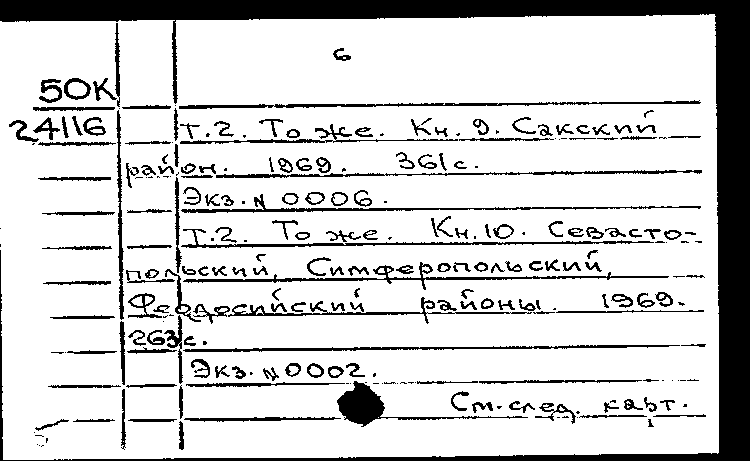 6
50К
24116 Т.2. То же. Кн. 9. Сакский
район. 1969. 361с.
Экз. № 0006.
Т.2. То же. Кн. 10. Севасто-
польский, Симферопольский,
Феодосийский районы. 1969.
263с.
Экз. № 0002.
См. след. карт.